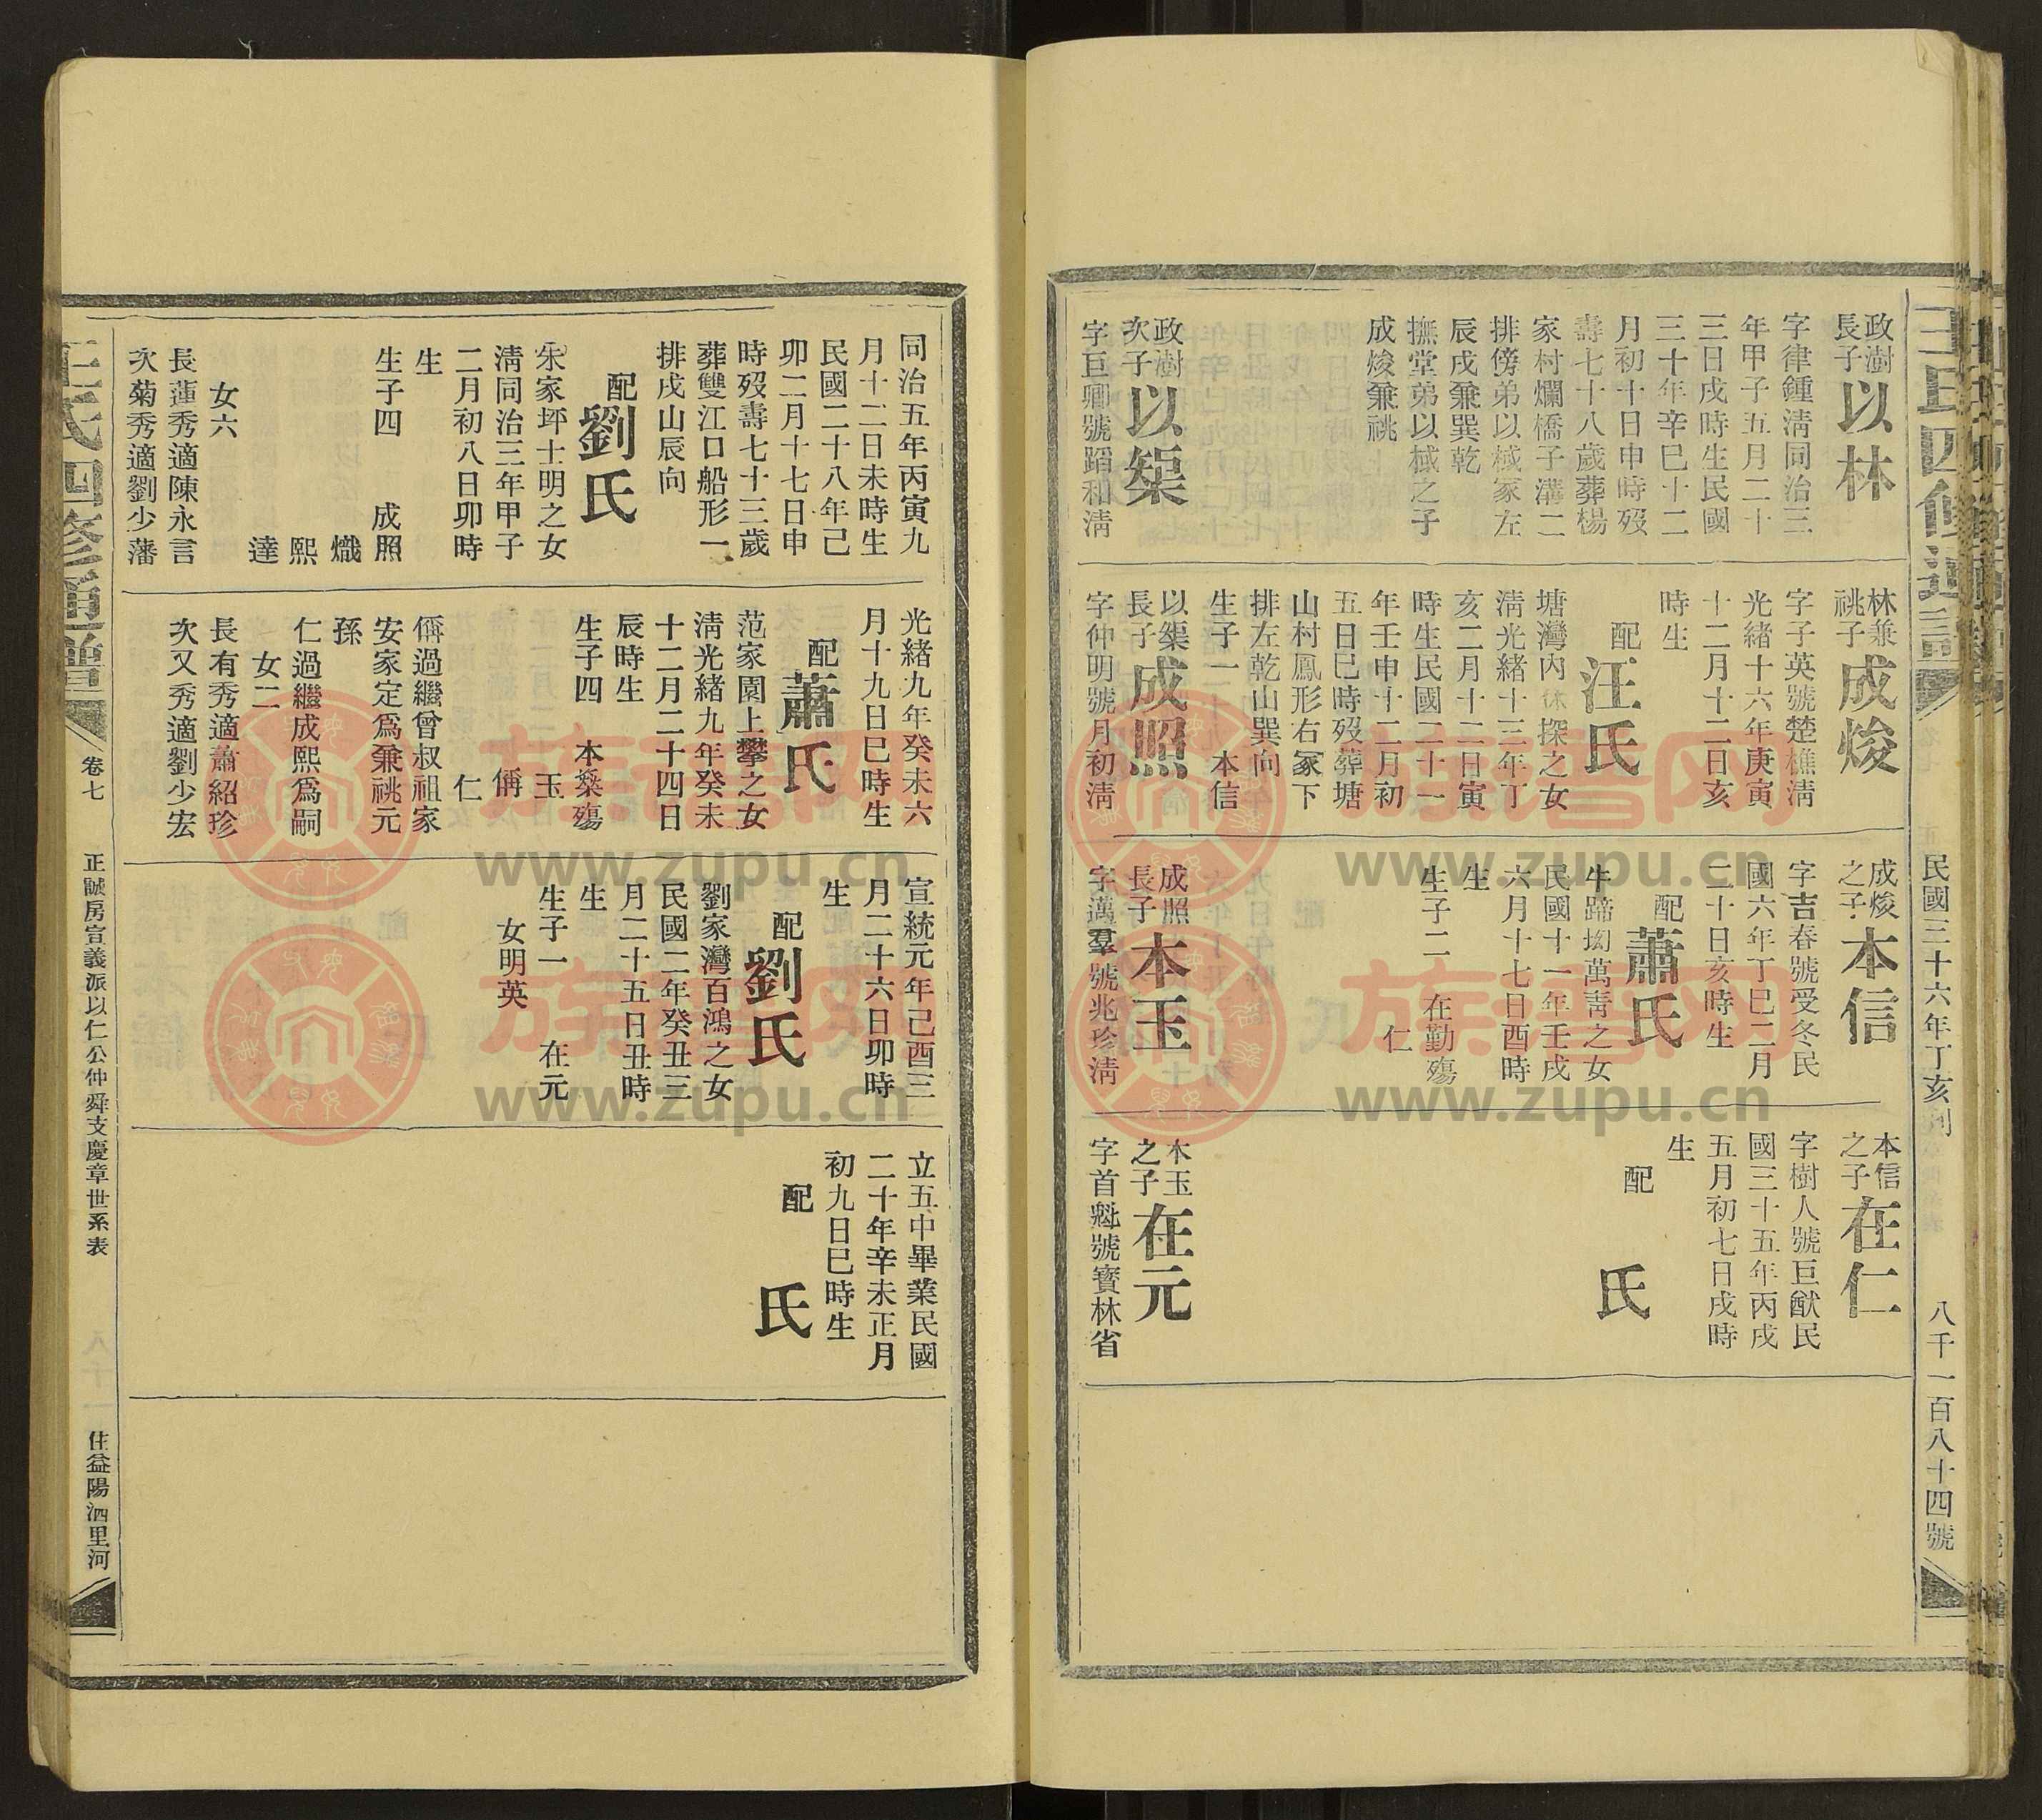 民國三十六年丁亥刋
八千一百八十四號
政樹
長子
以林
字律鍾淸同治三
年甲子五月二十
三日戌時生民國
三十年辛巳十二
月初十日申時歿
壽七十八歲葬楊
家村爛橋子溝二
排傍弟以棫冢左
辰戌兼巽乾
撫堂弟以棫之子
成焌兼祧
政樹
次子
以榘
字巨卿號蹈和淸
林兼
祧子
成焌
字子英號楚樵淸
光緒十六年庚寅
十二月十二日亥
時生
配
汪氏
塘灣內休探之女
淸光緒十三年丁
亥二月十二日寅
時生民國二十一
年壬申十二月初
五日巳時歿葬塘
山村鳳形右冢下
排左乾山巽向
生子一
本信
以榘
長子
成照
字仲明號月初淸
成焌
之子
本信
字吉春號受冬民
國六年丁巳二月
二十日亥時生
配
蕭氏
牛蹄坳萬靑之女
民國十一年壬戌
六月十七日酉時
生
生子二
在勤殤
仁
成照
長子
本玉
字邁羣號兆珍淸
本信
之子
在仁
字樹人號巨猷民
國三十五年丙戌
五月初七日戌時
生
配
氏
本玉
之子
在元
字首魁號寶林省
同治五年丙寅九
月十二日未時生
民國二十八年己
卯二月十七日申
時歿壽七十三歲
葬雙江口船形一
排戌山辰向
配
劉氏
朱家坪士明之女
淸同治三年甲子
二月初八日卯時
生
生子四
成照
熾
熙
達
女六
長蓮秀適陳永言
次菊秀適劉少藩
光緒九年癸未六
月十九日巳時生
配
蕭氏
范家園上攀之女
淸光緒九年癸未
十二月二十四日
辰時生
生子四
本燊殤
玉
偁
仁
偁過繼曾叔祖家
安家定爲兼祧元
孫
仁過繼成熙爲嗣
女二
長有秀適蕭紹珍
次又秀適劉少宏
宣統元年己酉三
月二十六日卯時
生
配
劉氏
劉家灣百鴻之女
民國二年癸丑三
月二十五日丑時
生
生子一
在元
女明英
立五中畢業民國
二十年辛未正月
初九日巳時生
配
氏
王氏四修通譜
卷七
正誠房宣義派以仁公仲舜支慶章世系表
住益陽泗里河
族谱网
www.zupu.cn
族谱网
www.zupu.cn
族谱网
www.zupu.cn
族谱网
www.zupu.cn